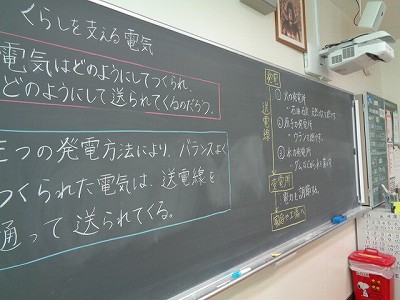 くらしを支える電気
電気はどのようにしてつくられ、
どのようにして送られてくるのだろう。
三つの発電方法により、バランスよく
つくられた電気は、送電線を
通って送られてくる。
発電
①火力発電所
・石油 石炭 天然ガスで
②原子力発電所
・ウランで
③水力発電所
・ダムなど
送電線
変電所
・電力を調節する。
家庭や工場へ